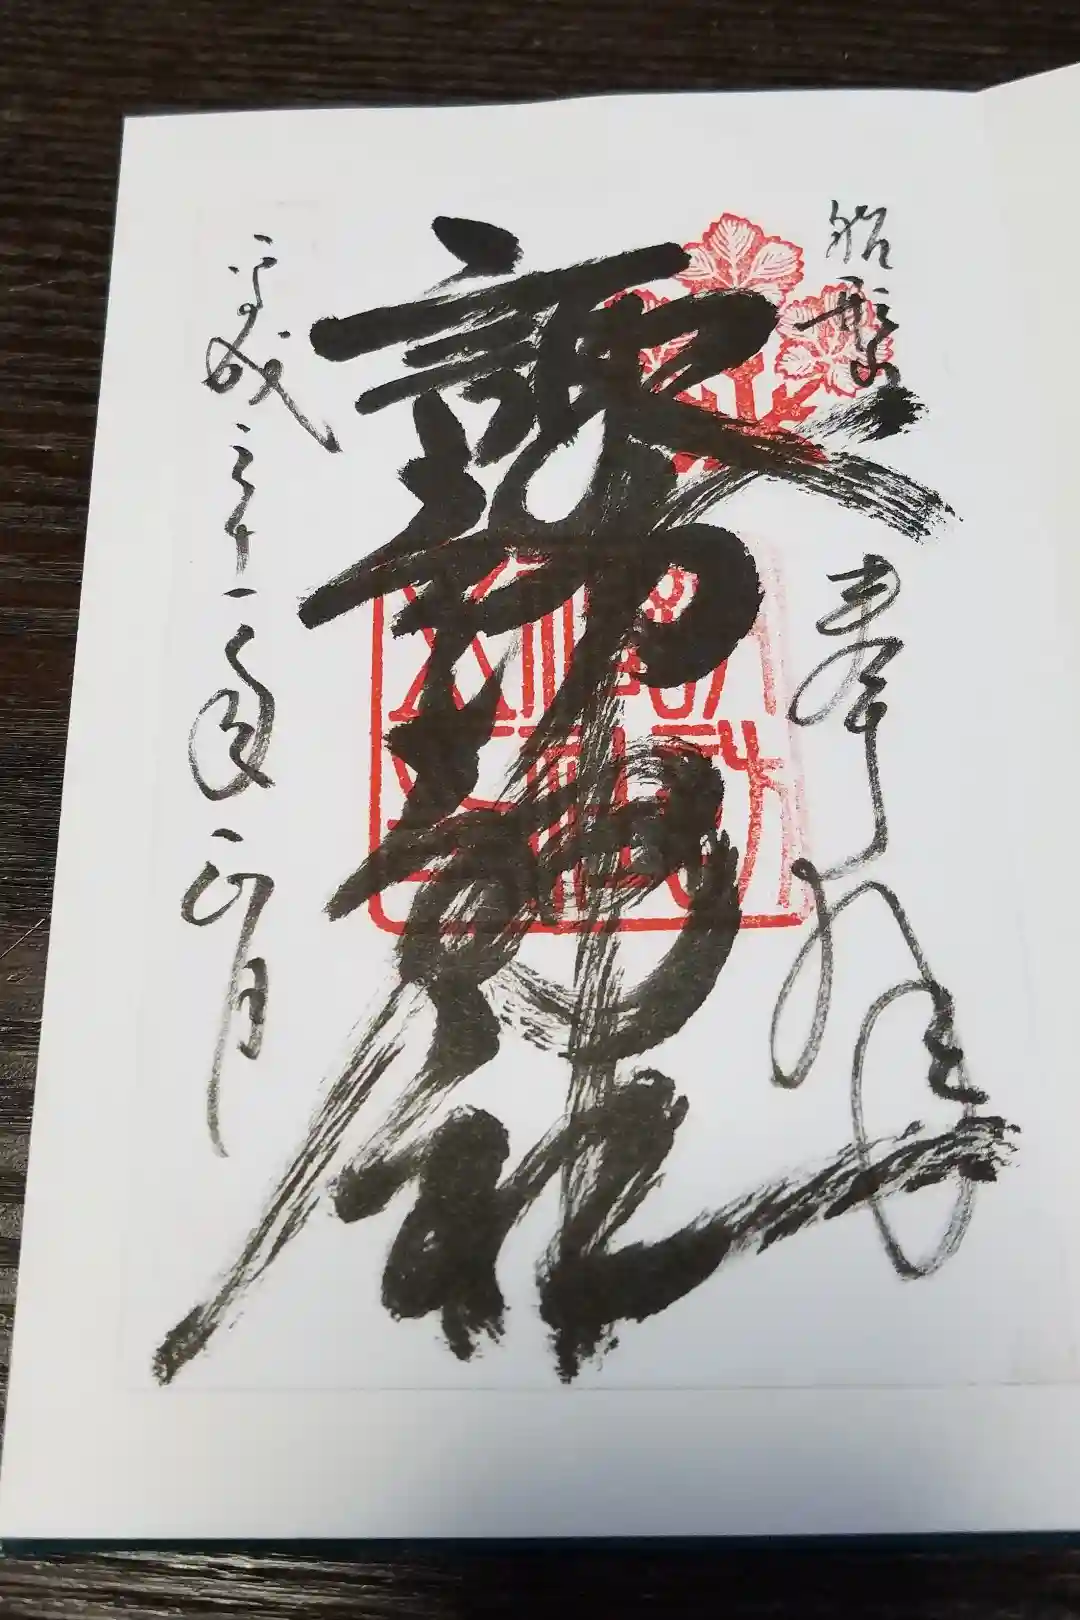 船形
奉拝
諏訪神社
平成三十一年正月